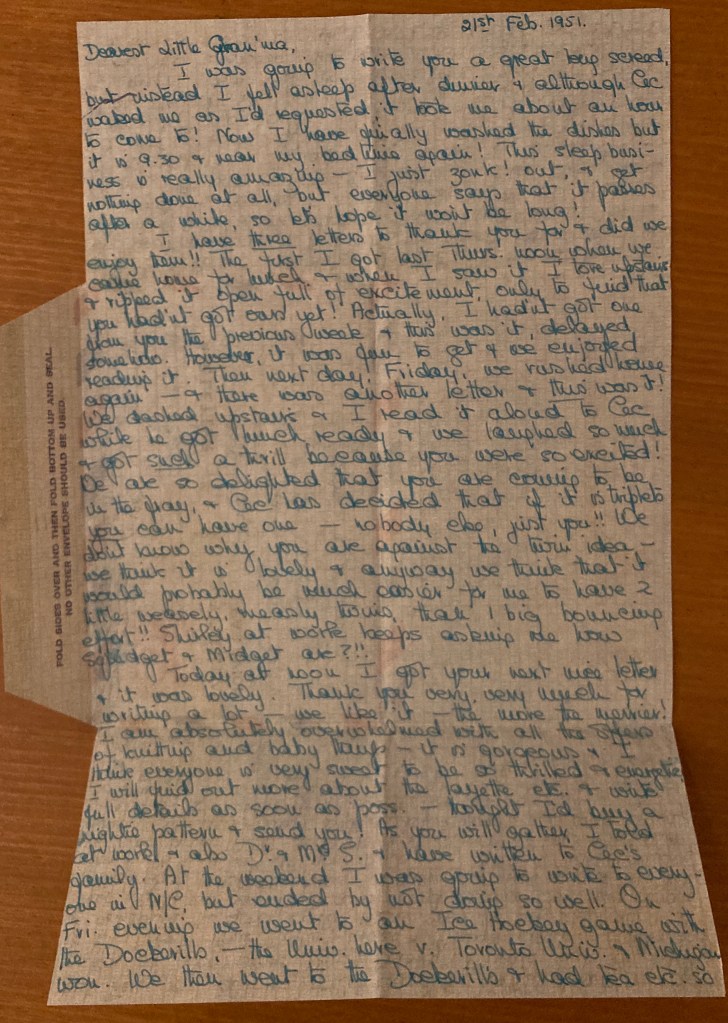 21st Feb. 1951.
Dearest Little Gran'ma,
I was going to write you a great long screed,
but instead I fell asleep after dinner & although Cec
waked me as I'd requested it took me about an hour
to come to! Now I have finally washed the dishes but
it is 9.30 & near my bedtime again! This sleep busi-
ness is really amazing — I just zonk! out, & get
nothing done at all, but everyone says that it passes
after a while, so let's hope it won't be long!
I have three letters to thank you for & did we
enjoy them!! The first I got last Thurs. noon when we
came home for lunch & when I saw it I tore upstairs
& ripped it open full of excitement, only to find that
you had'nt got ours yet! Actually, I had'nt got one
from you the previous week & this was it, delayed
somehow. However, it was fun to get & we enjoyed
reading it. Then next day, Friday, we rushed home
again — & there was another letter & this was it!
We dashed upstairs & I read it aloud to Cec
while he got lunch ready & we laughed so much
& got such a thrill because you were so excited!
We are so delighted that you are coming to be
in the fray, & Cec has decided that if it is triplets
you can have one — nobody else, just you!! We
don't know why you are against the twin idea, —
we think it is lovely & anyway we think that it
would probably be much easier for me to have 2
little weasely, measly twins, than 1 big bouncing
effort!! Shirley at work keeps asking me how
Squidget & Midget are?!!
Today at noon I got your next nice letter
& it was lovely. Thank you very, very much for
writing a lot — we like it — the more the merrier!
I am absolutely overwhelmed with all the offers
of knitting and baby things — it is gorgeous & I
think everyone is very sweet to be so thrilled & energetic.
I will find out more about the layette etc. & write
full details as soon as poss. — thought I'd buy a
nightie pattern & send you! As you will gather, I told
at work & also Dr. & Mrs S. & have written to Cec's
family. At the weekend I was going to write to every-
one in N/C, but ended by not doing so well. On
Fri. evening we went to an Ice Hockey game with
the Dockerills, — the Univ. here v. Toronto Univ. & Michigan
won. We then went to the Dockerills & had tea etc. so
FOLD SIDES OVER AND THEN FOLD BOTTOM UP AND SEAL.
NO OTHER ENVELOPE SHOULD BE USED.